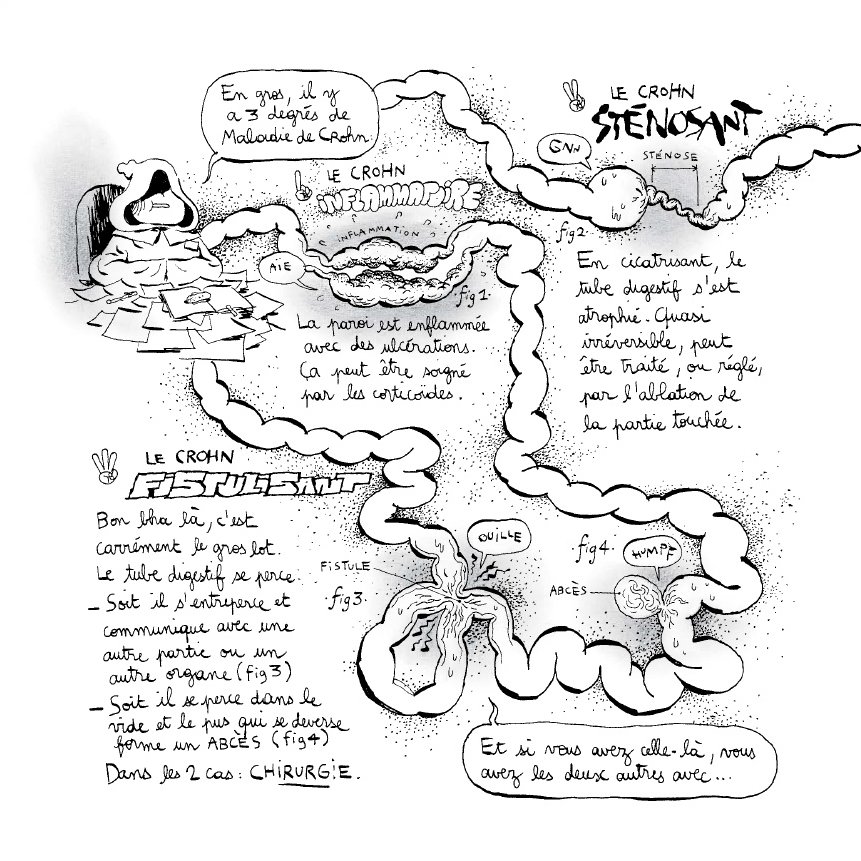 En gros, il y
a 3 degrés de
Maladie de Crohn.
LE CROHN
INFLAMMATOIRE
INFLAMMATION
AIE
fig 1.
La paroi est enflammée
avec des ulcérations.
Ça peut être soigné
par les corticoïdes.
LE CROHN
STÉNOSANT
GNN
STÉNOSE
fig 2.
En cicatrisant, le
tube digestif s'est
atrophié. Quasi
irréversible, peut
être traité, ou réglé,
par l'ablation de
la partie touchée.
LE CROHN
FISTULISANT
Bon bha là, c'est
carrément le gros lot.
Le tube digestif se perce.
– Soit il s'entreperce et
communique avec une
autre partie ou un
autre organe (fig 3)
– Soit il se perce dans le
vide et le pus qui se deverse
forme un ABCÈS (fig 4)
Dans les 2 cas : CHIRURGIE.
FISTULE
fig 3.
OUILLE
fig 4.
HUMPF
ABCÈS
Et si vous avez celle-là, vous
avez les deux autres avec...